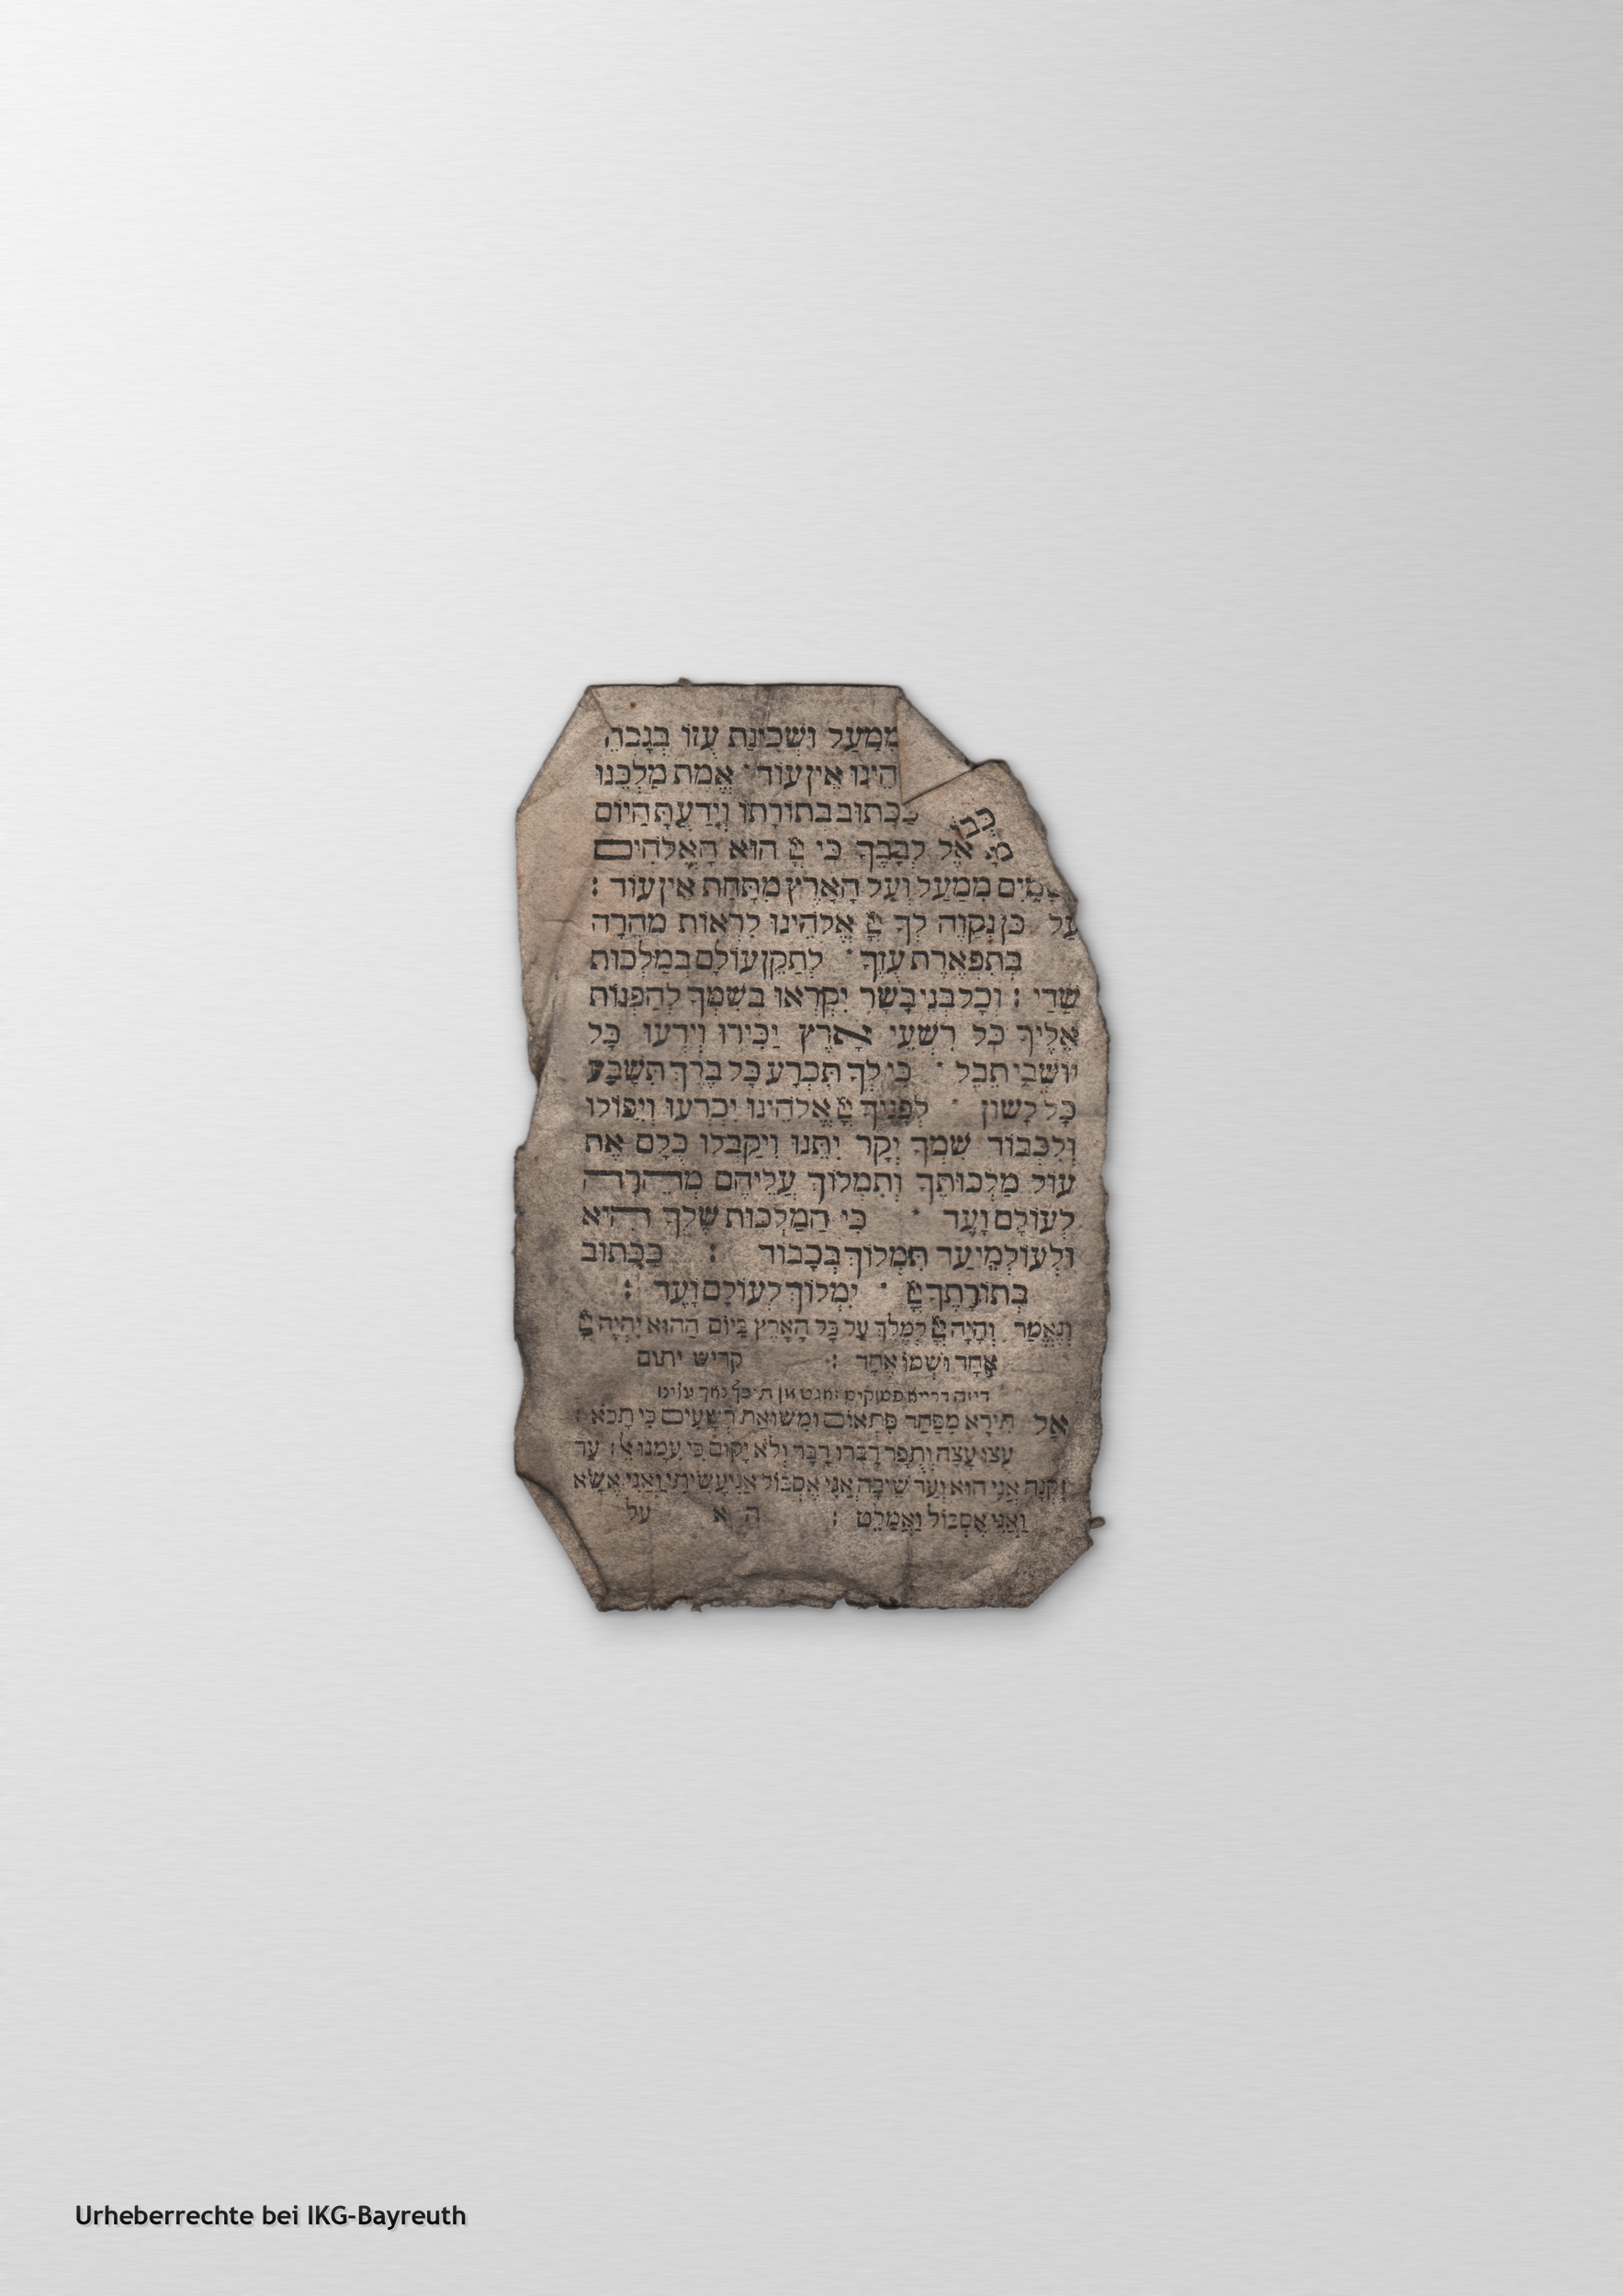 ממעל ושכינת עזו בגבהי
הינו אין עוד · אמת מלכנו
ככתוב בתורתו וידעת היום
אל לבבך כי הוא האלהים
ממעל ועל הארץ מתחת אין עוד :
על כן נקוה לך אלהינו לראות מהרה
בתפארת עזך · לתקן עולם במלכות
שדי : וכל בני בשר יקראו בשמך להפנות
אליך כל רשעי ארץ יכירו וידעו כל
יושבי תבל · כי לך תכרע כל ברך תשבע
כל לשון · לפניך אלהינו יכרעו ויפולו
ולכבוד שמך יקר יתנו ויקבלו כלם את
עול מלכותך ותמלוך עליהם מהרה
לעולם ועד · כי המלכות שלך היא
ולעולמי עד תמלוך בכבוד : ככתוב
בתורתך · ימלוך לעולם ועד :
ונאמר והיה למלך על כל הארץ ביום ההוא יהיה
אחד ושמו אחד : קדיש יתום
דיזה דרייא פסוקים זאגט מן
אל תירא מפחד פתאום ומשואת רשעים כי תבא :
עצו עצה ותפר דברו דבר ולא יקום כי עמנו אל : עד
זקנה אני הוא ועד שיבה אני אסבול אני עשיתי ואני אשא
ואני אסבול ואמלט : ה א על
Urheberrechte bei IKG-Bayreuth